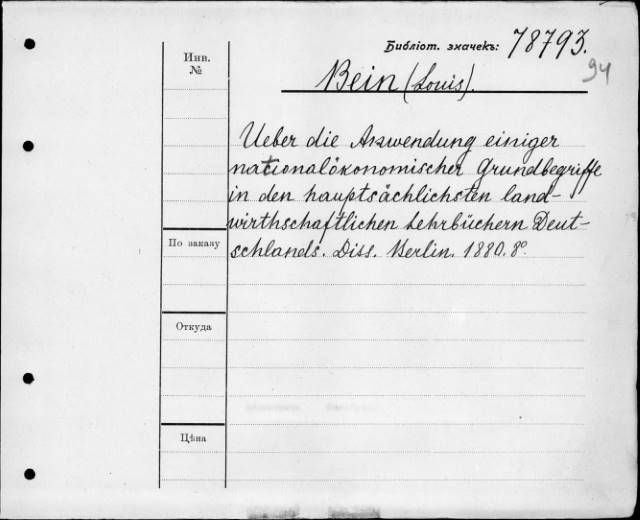 Библіот. значекъ: 78793.
94
Инв.
№
Bein (Louis).
Ueber die Anwendung einiger
nationalökonomischer Grundbegriffe
in den hauptsächlichsten land-
wirthschaftlichen Lehrbüchern Deut-
schlands. Diss. Berlin. 1880. 8°.
По заказу
Откуда
Цѣна